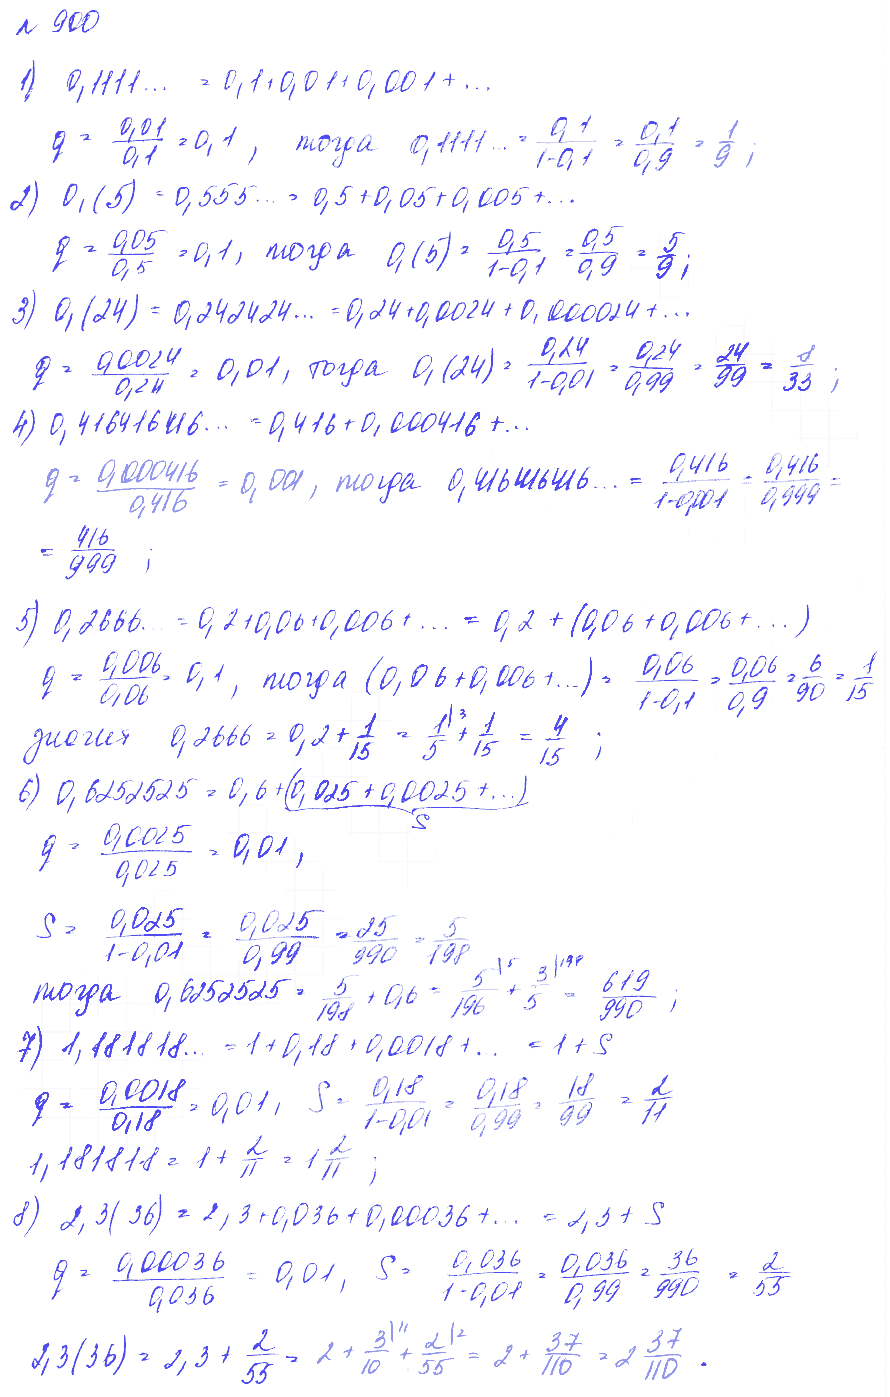 № 900
1) 0,1111... = 0,1+0,01+0,001+...
q = 0,01/0,1 = 0,1, тогда 0,1111... = 0,1/(1-0,1) = 0,1/0,9 = 1/9;
2) 0,(5) = 0,555... = 0,5+0,05+0,005+...
q = 0,05/0,5 = 0,1, тогда 0,(5) = 0,5/(1-0,1) = 0,5/0,9 = 5/9;
3) 0,(24) = 0,242424... = 0,24+0,0024+0,000024+...
q = 0,0024/0,24 = 0,01, тогда 0,(24) = 0,24/(1-0,01) = 0,24/0,99 = 24/99 = 8/33;
4) 0,416416416... = 0,416+0,000416+...
q = 0,000416/0,416 = 0,001, тогда 0,416416416... = 0,416/(1-0,001) = 0,416/0,999 =
= 416/999;
5) 0,2666... = 0,2+0,06+0,006+... = 0,2+(0,06+0,006+...)
q = 0,006/0,06 = 0,1, тогда (0,06+0,006+...) = 0,06/(1-0,1) = 0,06/0,9 = 6/90 = 1/15
значит 0,2666 = 0,2+1/15 = 1/5|3 + 1/15 = 4/15;
6) 0,6252525 = 0,6+(0,025+0,0025+...)
S
q = 0,0025/0,025 = 0,01,
S = 0,025/(1-0,01) = 0,025/0,99 = 25/990 = 5/198
тогда 0,6252525 = 5/198 + 0,6 = 5/196|5 + 3/5|198 = 619/990;
7) 1,181818... = 1+0,18+0,0018+... = 1+S
q = 0,0018/0,18 = 0,01, S = 0,18/(1-0,01) = 0,18/0,99 = 18/99 = 2/11
1,181818 = 1+2/11 = 1 2/11;
8) 2,3(36) = 2,3+0,036+0,00036+... = 2,3+S
q = 0,00036/0,036 = 0,01, S = 0,036/(1-0,01) = 0,036/0,99 = 36/990 = 2/55
2,3(36) = 2,3+2/55 = 2+3/10|11 + 2/55|2 = 2+37/110 = 2 37/110.